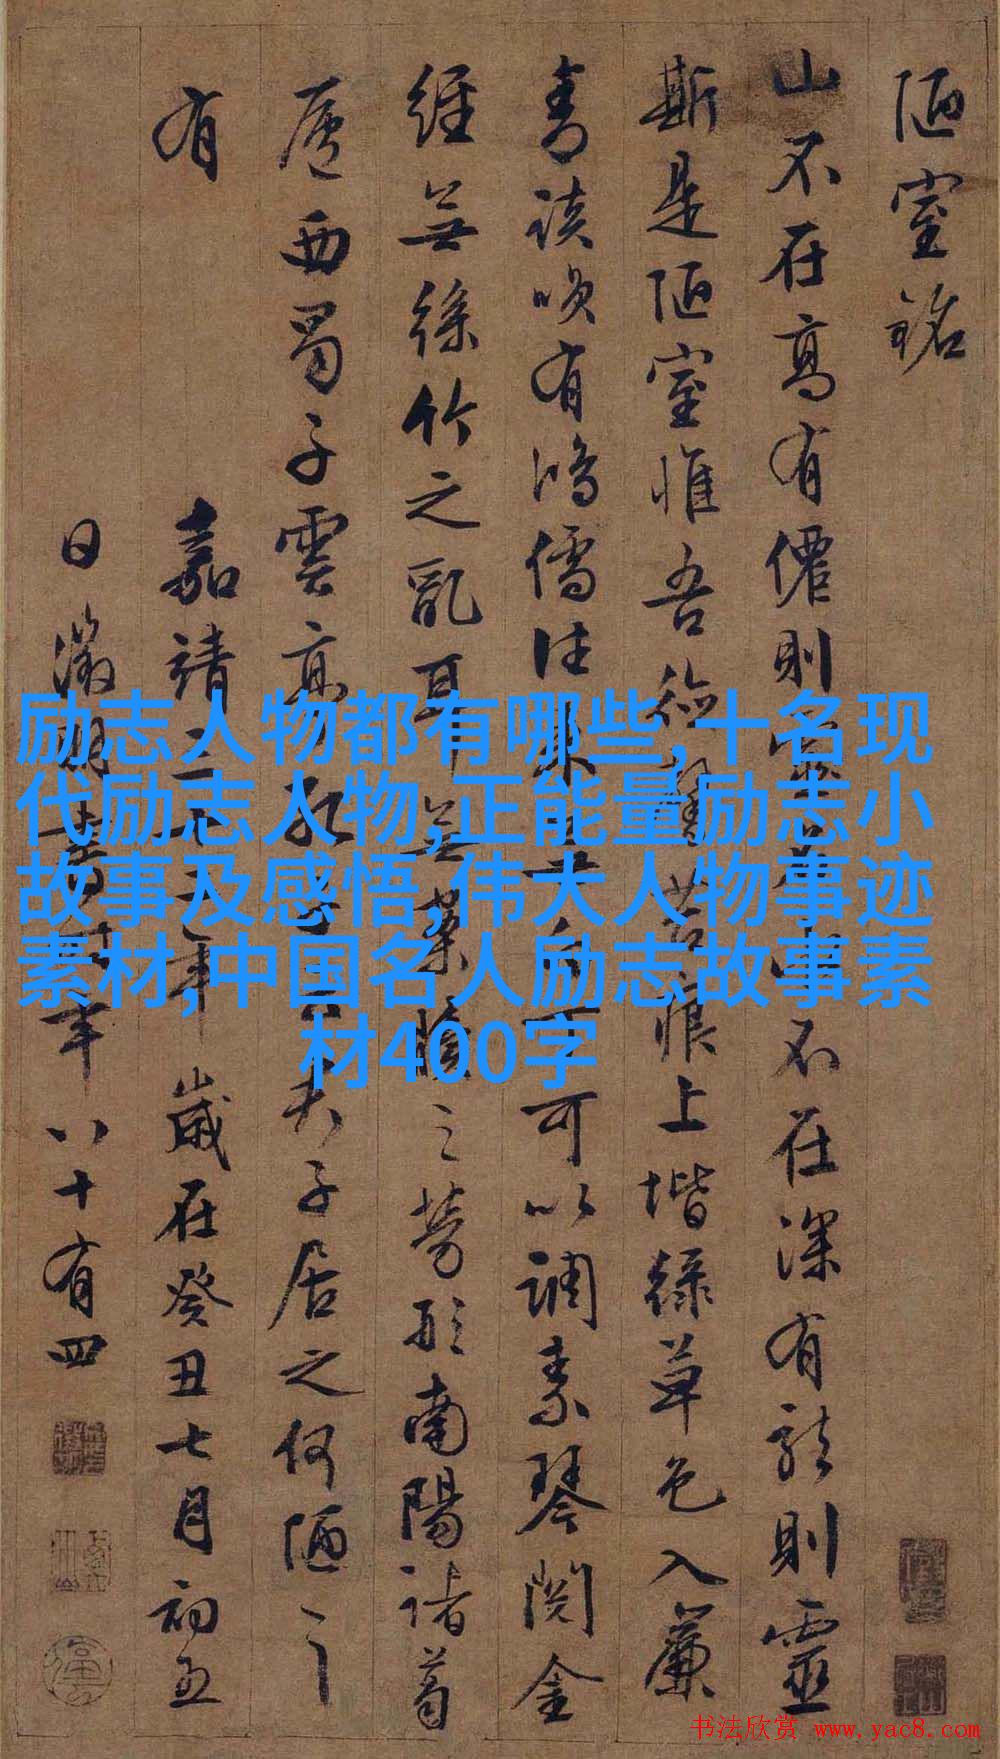 陋室銘
山不在高有僊則不在深有龍則靈
斯是陋室惟吾德馨苔痕上堦綠草色入簾
青談咲有鴻儒往來無白丁可以調素琴閱金
經無絲竹之亂耳無案牘之勞形南陽諸葛
廬西蜀子雲亭孔子居之何陋之
有
嘉靖三十二年歲在癸丑七月初五
日徵明書時年八十有四
励志人物都有哪些,十名现
代励志人物,正能量励志小
故事及感悟,伟大人物事迹
素材,中国名人励志故事素
材400字
书法欣赏 www.yac8.com